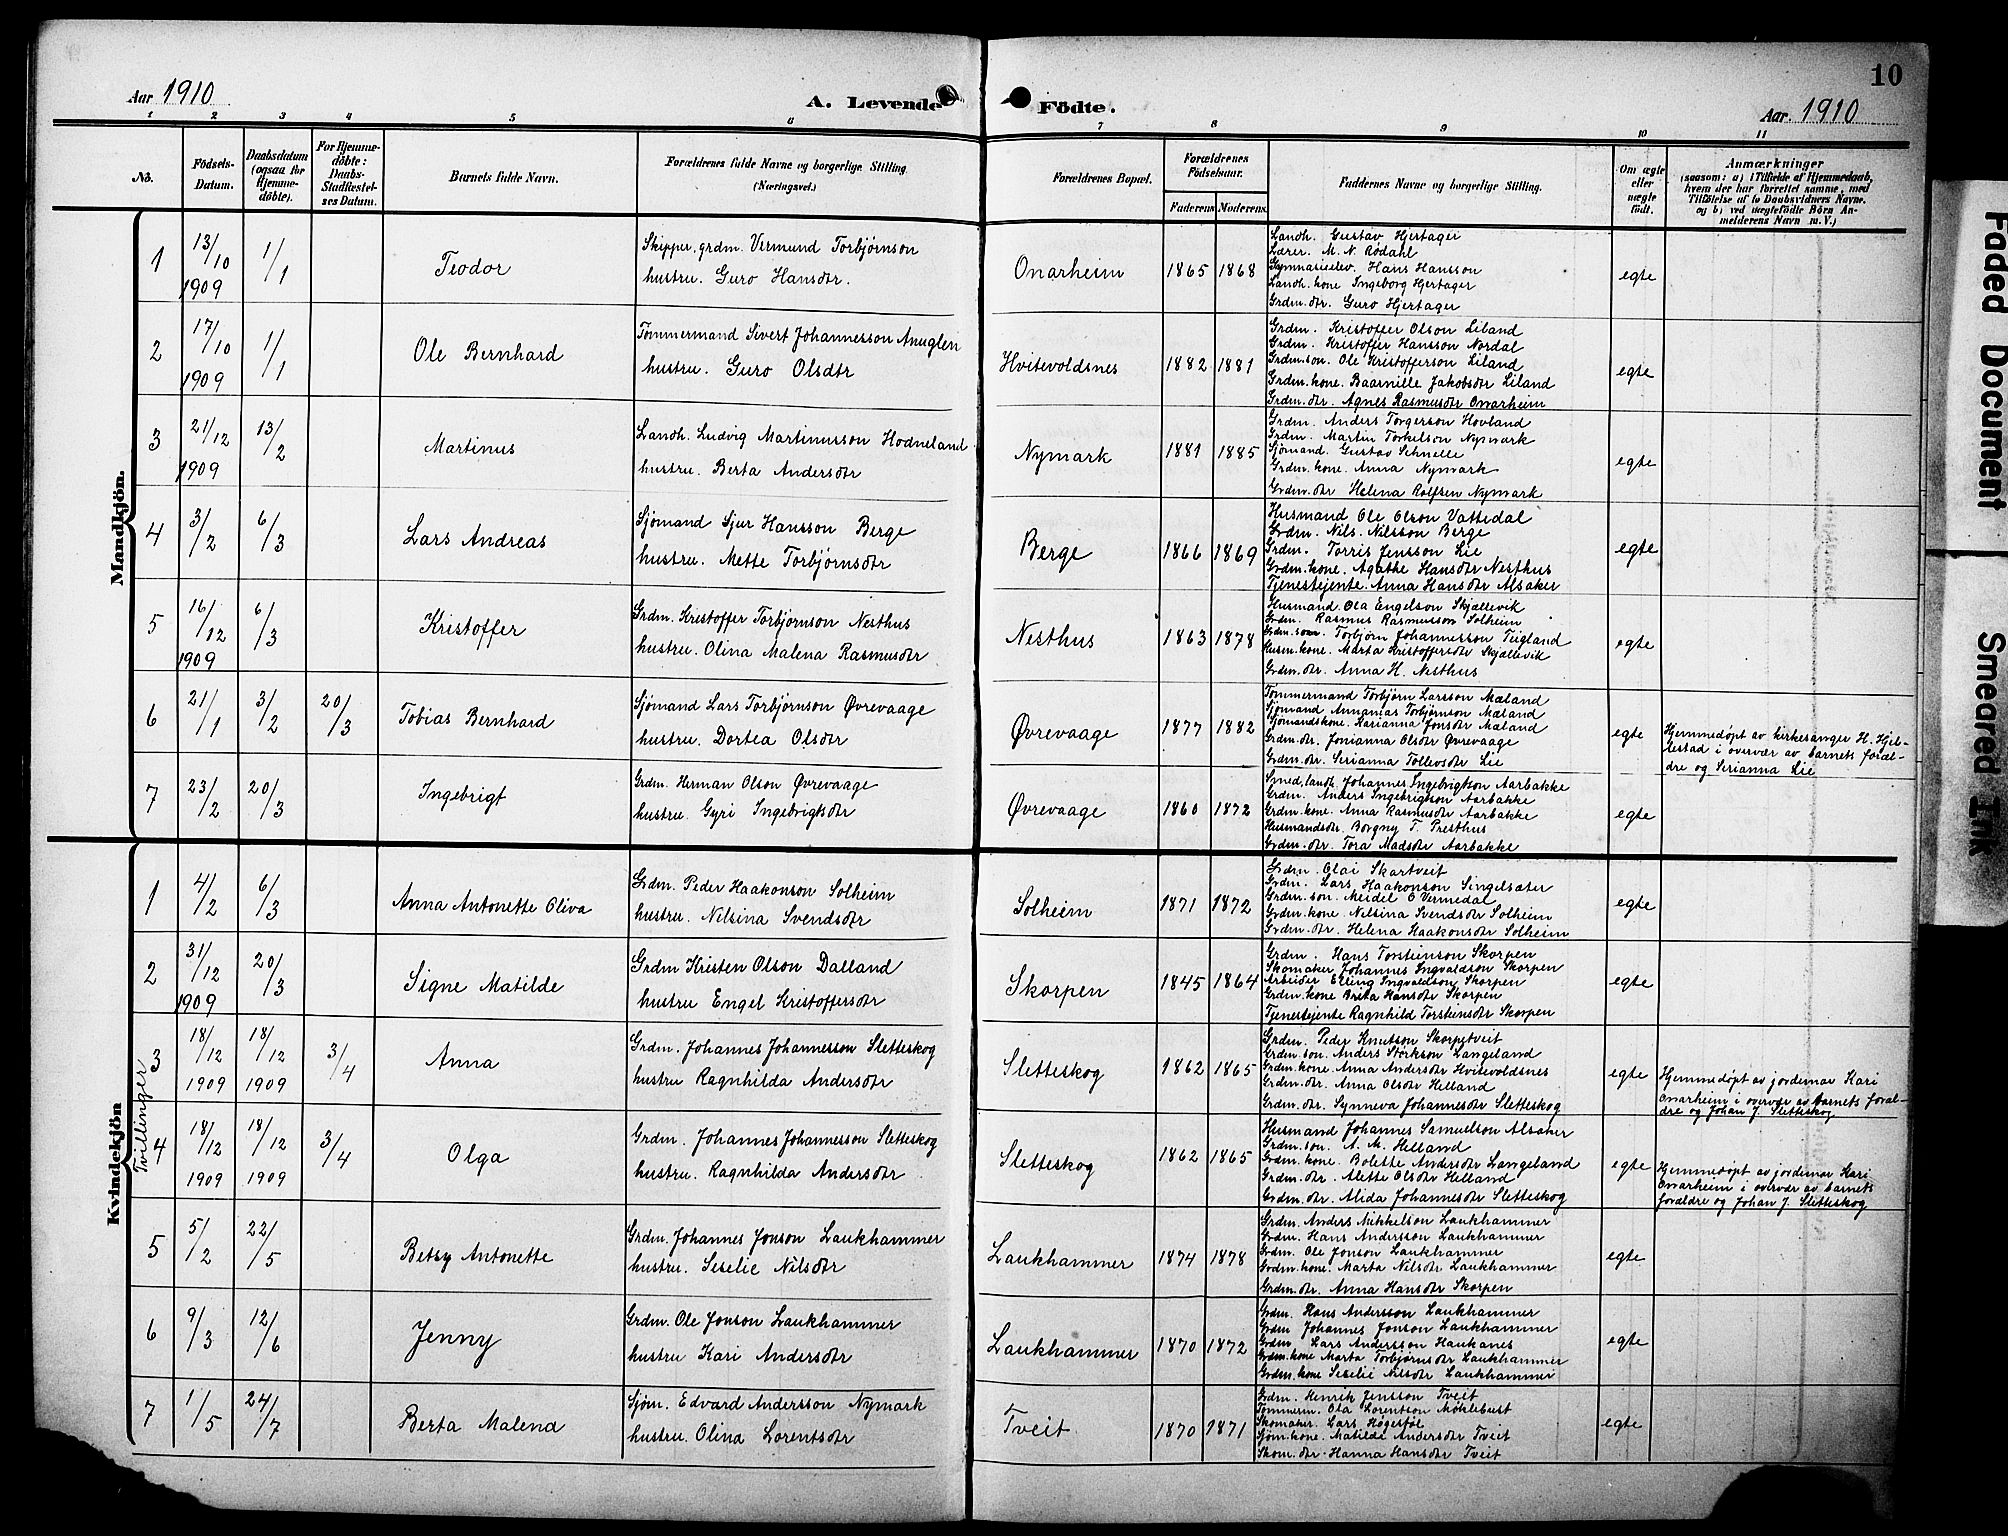 10
Aar 1910
A. Levende Födte.
Aar. 1910
1 2 3 4 5 6 7 8 9 10 11
No.
Födsels-
Datum.
Daabsdatum
(ogsaa for
Hjemme-
döbte).
For Hjemme-
döbte:
Daabs-
Stadfæstel-
ses Datum.
Barnets fulde Navn.
Forældrenes fulde Navne og borgerlige Stilling.
(Næringsvei.)
Forældrenes Bopæl.
Forældrenes
Födselsaar.
Faderens Moderens.
Faddernes Navne og borgerlige Stilling.
Om ægte
eller
uægte
født.
Anmærkninger
(saasom: a) i Tilfælde af Hjemmedaab,
hvem der har forrettet samme, med
Tilföielse af to Daabsvidners Navne.
og b) ved uægtefödte Börn An-
melderens Navn m. V.)
Mandkjön.
1
13/10
1909
1/1
Teodor
Skipper, grdm. Vermund Torbjørnson
hustru. Guro Hansdtr.
Onarheim
1865 1868
Landh. Gustav Hjertager
Lærer. M. N. Rødahl
Gymnasieelev. Hans Hansson
Landh. kone Ingeborg Hjertager
Grdm. dtr. Guro Hjertager
egte
2
17/10
1909
1/1
Ole Bernhard
Tømmermand Sivert Johannesson Anuglen
hustru. Guro Olsdtr
Hvitevoldsnes
1882 1881
Grdm. Kristoffer Olson Liland
Grdm. Kristoffer Hansson Nordal
Grdm. son. Ole Kristofferson Liland
Grdm. kone. Baarnille Jakobsdtr Liland
Grdm. dtr. Agnes Rasmusdtr Onarheim
egte
3
21/12
1909
13/2
Martinus
Landh. Ludvig Martinusson Hodneland
hustru. Berta Andersdtr
Nymark
1881 1885
Grdm. Anders Torgerson Hovland
Grdm. Martin Torkelson Nymark
Sjømand. Gustav Schnelle
Grdm. kone. Anna Nymark
Grdm. dtr Helena Rolfsen Nymark
egte
4
3/2
6/3
Lars Andreas
Sjømand Sjur Hansson Berge
hustru. Mette Torbjørnsdtr
Berge
1866 1869
Husmand Ole Olson Vattedal
Grdm. Nils. Nilsson Berge
Grdm. Torris Jensson Lie
Grdm. kone. Agathe Hansdtr Nesthus
Tjenestejente. Anna Hansdtr Alsaker
egte
5
16/12
1909
6/3
Kristoffer
Grdm. Kristoffer Torbjørnson Nesthus
hustru. Olina Malena Rasmusdtr
Nesthus
1863 1878
Husmand. Ola Engelson Skjællevik
Grdm. Rasmus Rasmusson Solheim
Grdm. son. Torbjørn Johannesson Teigland
Husm. kone. Marta Kristoffersdtr Skjællevik
Grdm. dtr. Anna H. Nesthus
egte
6
21/1
3/2
20/3
Tobias Bernhard
Sjømand Lars Torbjørnson Øvrevaage
hustru. Dortea Olsdtr
Øvrevaage
1877 1882
Tømmermand Torbjørn Larsson Mæland
Sjømand Annanias Torbjørnson Mæland
Sjømandskone. Karianna Jonsdtr Mæland
Grdm. dtr. Jonianna Olsdtr Øvrevaage
Grdm. dtr. Serianna Tollevsdtr Lie
egte
Hjemmedøpt av kirkesanger H. Hjel-
lestad i overvær av barnets foræl-
dre og Serianna Lie
7
23/2
20/3
Ingebrigt
Grdm. Herman Olson Øvrevaage
hustru. Gyri Ingebrigtsdtr
Øvrevaage
1860 1872
Smed, landh. Johannes Ingebrigtson Aarbakke
Grdm. Anders Ingebrigtson Aarbakke
Grdm. kone. Anna Rasmusdtr Aarbakke
Husmandsdtr. Borgny T. Presthus
Grdm. dtr. Tora Madsdtr Aarbakke
egte
Kvindekjön
1
4/2
6/3
Anna Antonette Oliva
Grdm. Peder Haakonson Solheim
hustru. Nilsina Svendsdtr
Solheim
1871 1872
Grdm. Olai Skartveit
Grdm. Lars Haakonson Singelsæter
Grdm. son. Meidel O Vermedal
Grdm. kone. Nilsina Svendsdtr Solheim
Grdm. dtr. Helena Haakonsdtr Solheim
egte
2
31/12
1909
20/3
Signe Matilde
Grdm Kristen Olson Dalland
hustru Engel Kristoffersdtr
Skorpen
1845 1864
Grdm. Hans Torsteinson Skorpen
Skomaker Johannes Ingvaldson Skorpen
Arbeider Erling Ingvaldson Skorpen
Grdm. kone Brita Hansdtr Skorpen
Tjenestejente Ragnhild Torsteinsdtr Skorpen
egte
Tvillinger
3
18/12
1909
18/12
1909
3/4
Anna
Grdm. Johannes Johannesson Sletteskog
hustru Ragnhilda Andersdtr
Sletteskog
1862 1865
Grdm. Peder Knutson Skorpetveit
Grdm. son. Anders Størkson Langeland
Grdm. kone. Anna Andersdtr Hvitevoldsnes
Grdm. dtr. Anna Olsdtr Helland
Grdm. dtr. Synneva Johannesdtr Sletteskog
egte
Hjemmedøpt av jordemor Kari
Onarheim i overvær av barnets foræl-
dre og Johan J. Sletteskog
4
18/12
1909
18/12
1909
3/4
Olga
Grdm. Johannes Johannesson Sletteskog
hustru. Ragnhilda Andersdtr
Sletteskog
1862 1865
Husmand Johannes Samuelson Alsaker
Grdm. son. A. M. Helland
Grdm. kone. Bolette Andersdtr Langeland
Grdm. dtr. Alette Olsdtr Helland
Grdm. dtr. Alida Johannesdtr Sletteskog
egte
Hjemmedøpt av jordemor Kari
Onarheim i overvær av barnets
forældre og Johan J. Sletteskog
5
5/2
22/5
Betsy Antonette
Grdm. Johannes Jonson Laukhammer
hustru. Seselie Nilsdtr
Laukhammer
1874 1878
Grdm. Anders Mikkelson Laukhammer
Grdm. Hans Andersson Laukhammer
Grdm. Ole Jonson Laukhammer
Grdm. kone. Marta Nilsdtr Laukhammer
Grdm. dtr. Anna Hansdtr Skorpen
egte
6
9/3
12/6
Jenny
Grdm. Ole Jonson Laukhammer
hustru Kari Andersdtr
Laukhammer
1870 1872
Grdm. Hans Andersson Laukhammer
Grdm Johannes Jonson Laukhammer
Grdm Lars Andersson Haukanes
Grdm. kone Marta Torbjørnsdtr Laukhammer
Grdm. kone Seselie Nilsdtr Laukhammer
egte
7
1/5
24/7
Berta Malena
Sjøm. Edvard Andersson Nymark
hustru. Olina Lorentsdtr
Tveit
1870 1871
Grdm. Henrik Jensson Tveit
Tømmerm. Ola Lorentson Møklebust
Skomaker. Lars Høgestøl
Sjøm. kone. Matilde Andersdtr Tveit
Skom. dtr. Hanna Hansdtr Tveit
egte
Faded Document
Smeared Ink